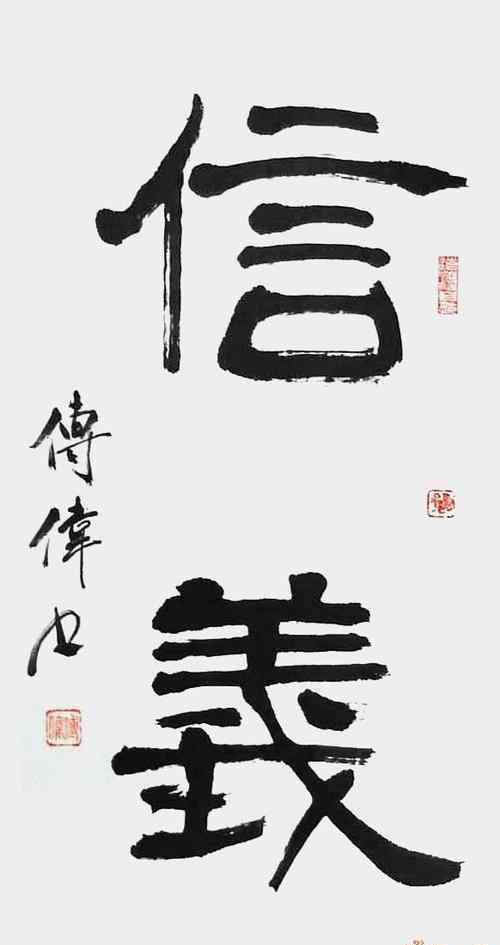 信義
傅偉